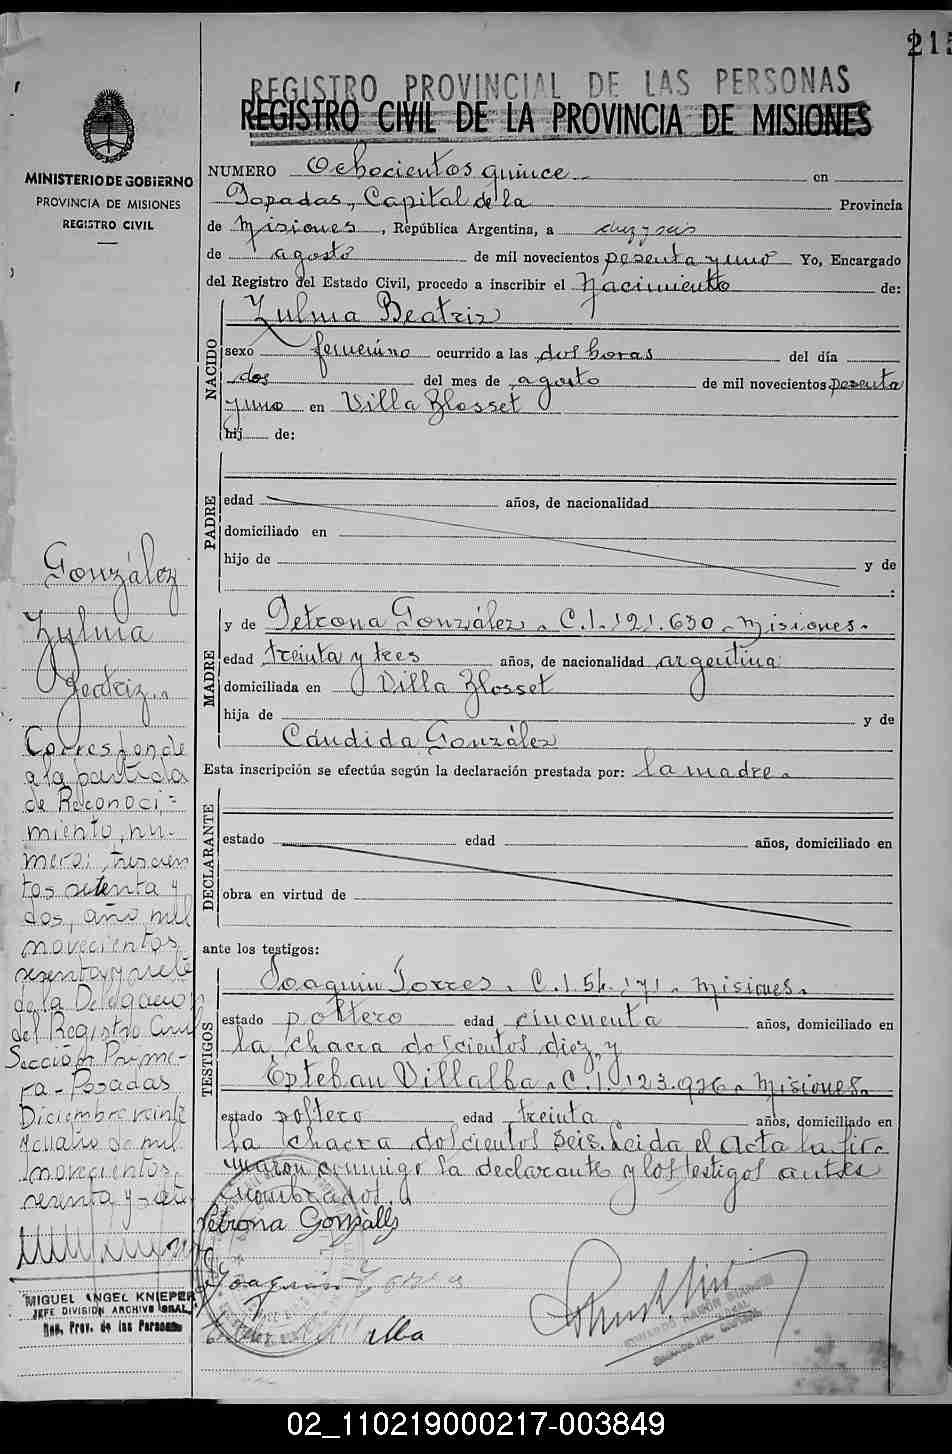 215
REGISTRO PROVINCIAL DE LAS PERSONAS
REGISTRO CIVIL DE LA PROVINCIA DE MISIONES
MINISTERIO DE GOBIERNO
PROVINCIA DE MISIONES
REGISTRO CIVIL
NUMERO Ochocientos quince en
Posadas, Capital de la Provincia
de Misiones, República Argentina, a diez y seis
de agosto de mil novecientos sesenta y uno Yo, Encargado
del Registro del Estado Civil, procedo a inscribir el Nacimiento de:
NACIDO
Zulma Beatriz
sexo femenino ocurrido a las dos horas del día
dos del mes de agosto de mil novecientos sesenta
y uno en Villa Blosset
hij de:
PADRE
edad años, de nacionalidad
domiciliado en
hijo de y de
:
MADRE
y de Petrona González. C.I. 121.630 Misiones.
edad treinta y tres años, de nacionalidad argentina
domiciliada en Villa Blosset
hija de y de
Cándida González
Esta inscripción se efectúa según la declaración prestada por: la madre.
DECLARANTE
estado edad años, domiciliado en
obra en virtud de
ante los testigos:
TESTIGOS
Joaquín Torres. C.I. 54.171. Misiones.
estado soltero edad cincuenta años, domiciliado en
la chacra doscientos diez, y
Esteban Villalba. C.I. 123.976. Misiones.
estado soltero edad treinta años, domiciliado en
la chacra doscientos seis. Leida el Acta la fir-
maron conmigo la declarante y los testigos antes
nombrados.
Petrona Gonzàlls
Joaquin Torres
González
Zulma
Beatriz.
Corresponde
a la partida
de Reconoci-
miento, nu-
mero: trescien
tos setenta y
dos, año mil
novecientos
sesenta y siete
de la Delegacion
del Registro Civil
Sección Prime-
ra - Posadas
Diciembre veinte
y cuatro de mil
novecientos
sesenta y siete
MIGUEL ANGEL KNIEPER
JEFE DIVISION ARCHIVO GRAL.
Reg. Prov. de las Personas
02_110219000217-003849